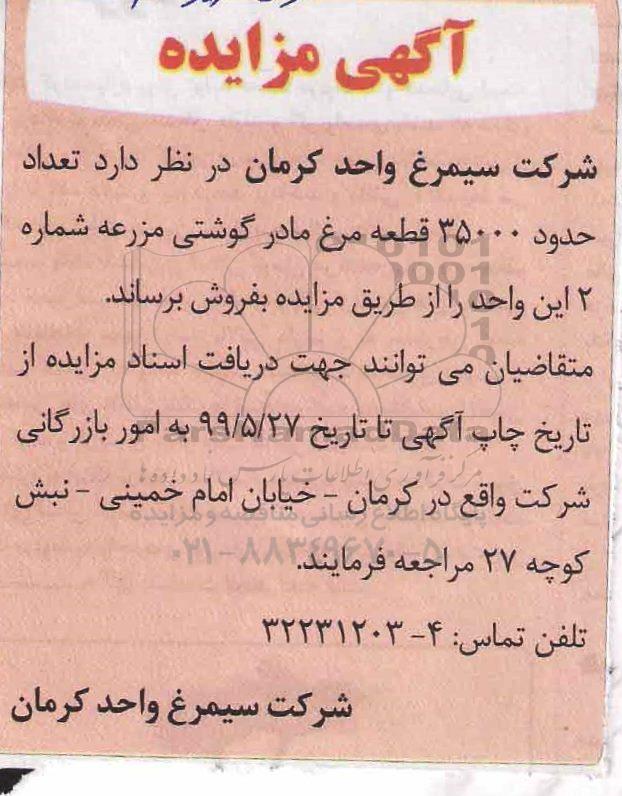 آگهی مزایده
شرکت سیمرغ واحد کرمان در نظر دارد تعداد
حدود ۳۵۰۰۰ قطعه مرغ مادر گوشتی مزرعه شماره
۲ این واحد را از طریق مزایده بفروش برساند.
متقاضیان می توانند جهت دریافت اسناد مزایده از
تاریخ چاپ آگهی تا تاریخ ۹۹/۵/۲۷ به امور بازرگانی
شرکت واقع در کرمان - خیابان امام خمینی - نبش
کوچه ۲۷ مراجعه فرمایند.
تلفن تماس: ۴- ۳۲۲۳۱۲۰۳
شرکت سیمرغ واحد کرمان
پایگاه اطلاع رسانی مناقصه و مزایده
۰۲۱-۸۸۳۴۹۶۷۰-۵